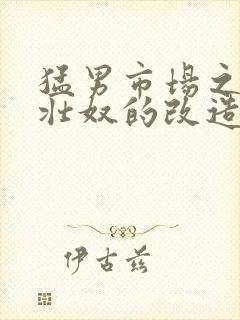 猛男市場之
壯奴的改造
伊古茲